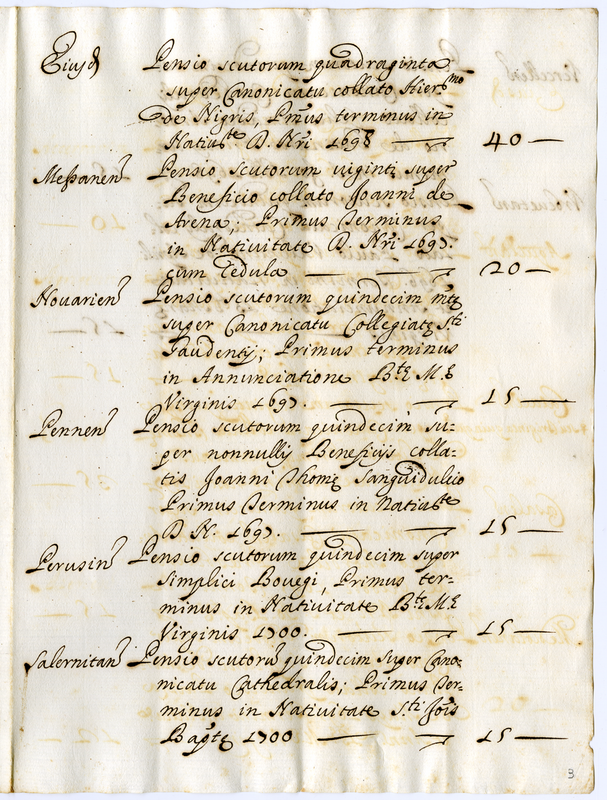 Eiusd Pensio scutorum quadraginta
super Canonicatu collato Hierᵐᵒ
de Nigris, Prm̃us terminus in
Natiuᵗᵉ D. Nr̃i 1698 — 40 —
Meßanen̄ Pensio scutorum uiginti super
Beneficio collato Joanni de
Arena; Primus Terminus
in Natiuitate D. Nr̃i 1697.
cum Cedula — 20 —
Nouarien̄ Pensio scutorum quindecim
super Canonicatu Collegiatę S.ᵗⁱ
Gaudentÿ; Primus terminus
in Annunciatione Bᵗę M.ę
Virginis 1697. — 15 —
Pennen̄ Pensio scutorum quindecim su-
per nonnullis Beneficÿs colla-
tis Joanni Thomę Sanguidulcio
Primus Terminus in Natiuᵗᵉ
D. N. 1697. — 15 —
Perusin̄ Pensio scutorum quindecim super
simplici Bouegi, Primus ter-
minus in Natiuitate Bᵗę M.ę
Virginis 1700. — 15 —
Salernitan̄ Pensio scutorũ quindecim super Cano-
nicatu Cathedralis; Primus Ter-
minus in Natiuitate S.ᵗⁱ Jois̃
Bap̃tę 1700 — 15 —
3